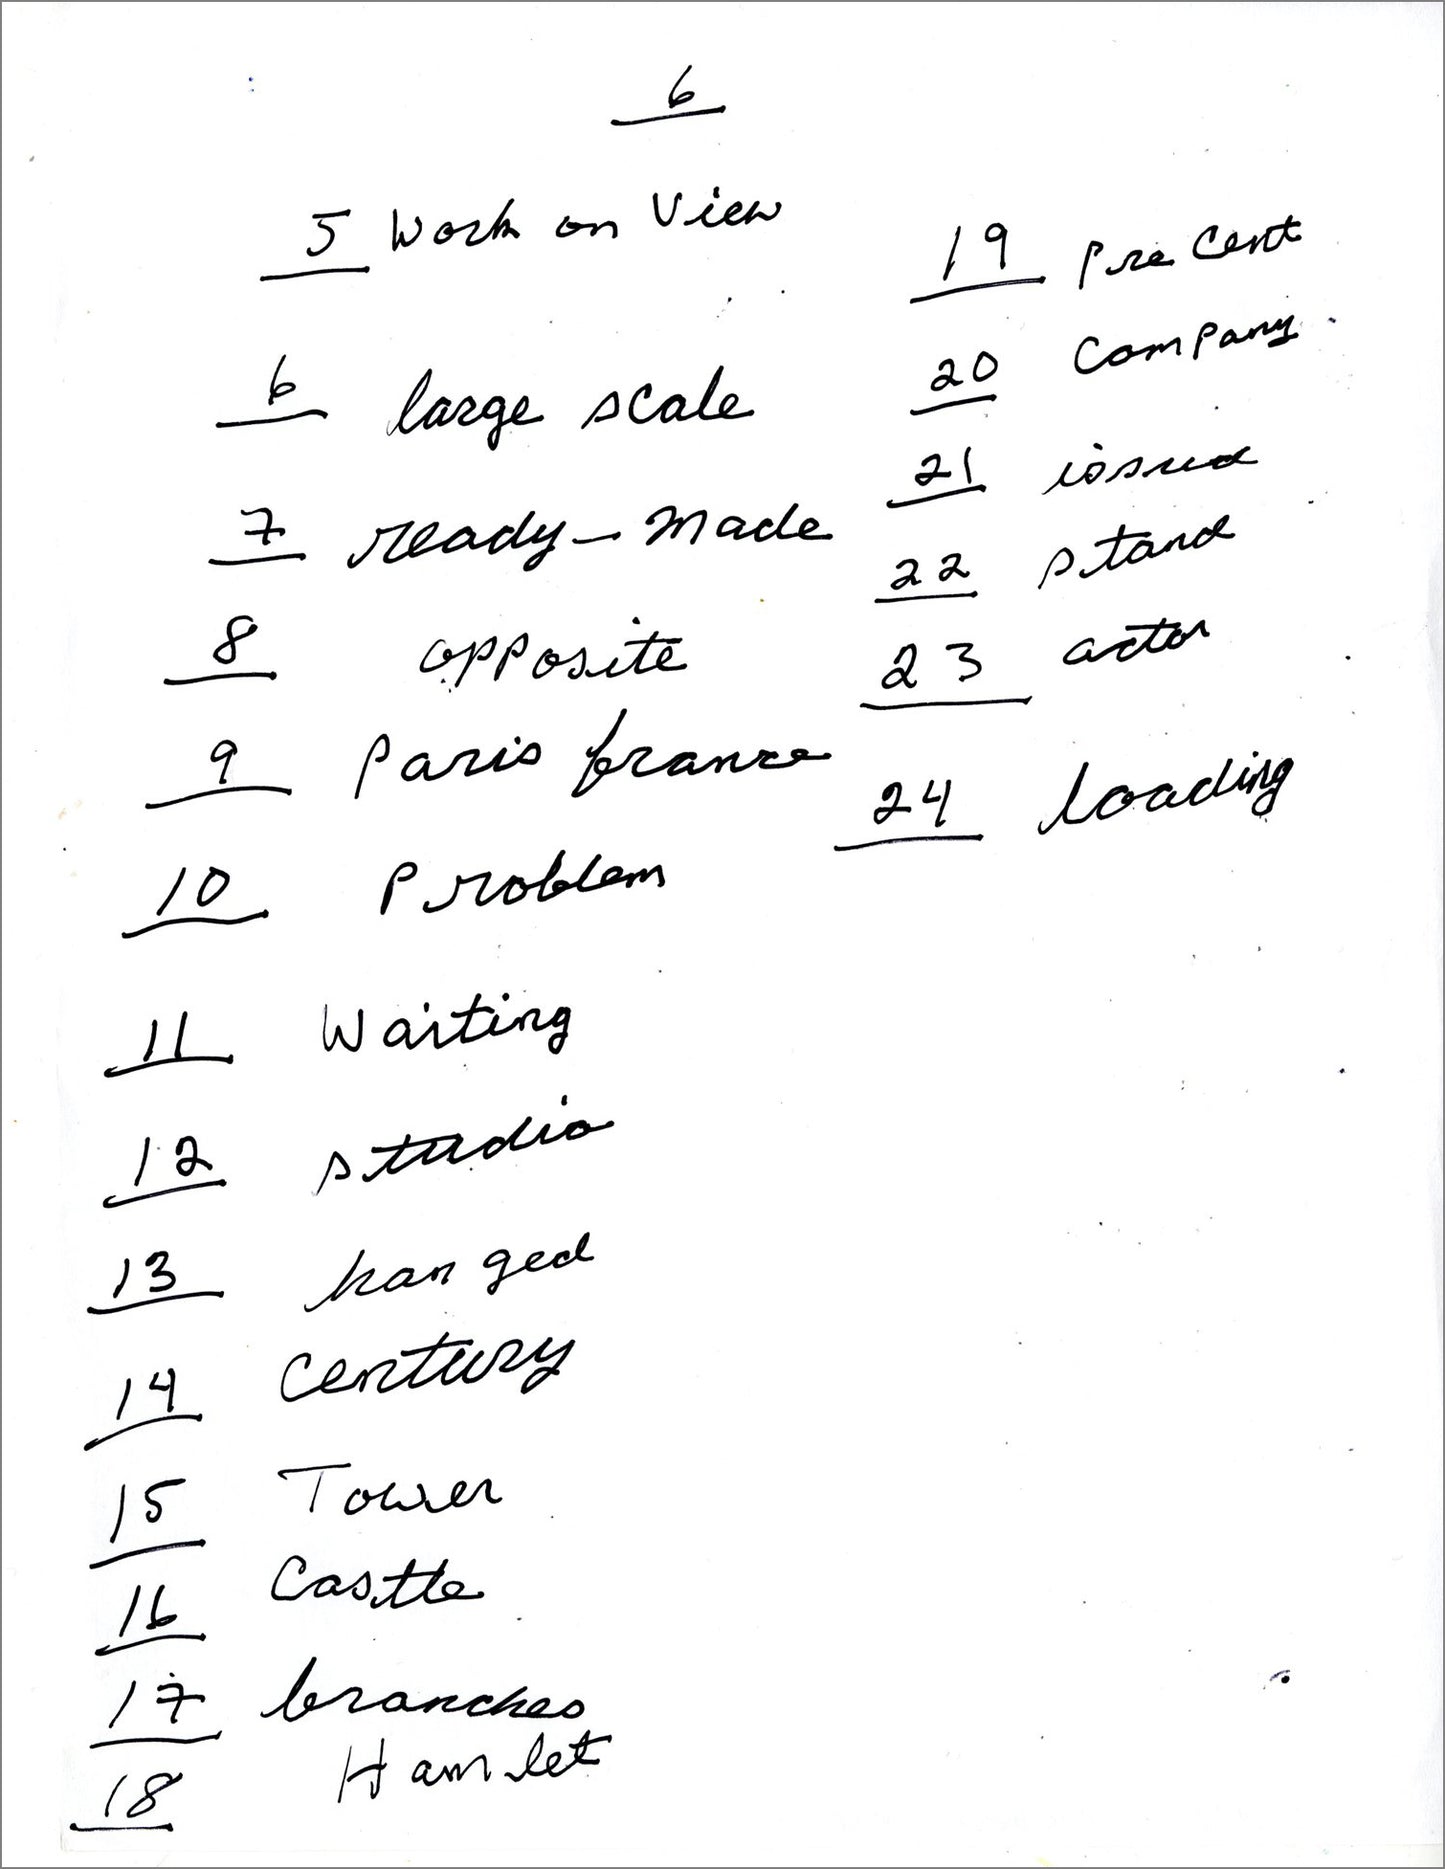 6
5 Work on View
6 large scale
7 ready-made
8 opposite
9 Paris france
10 Problem
11 Waiting
12 studio
13 hanged
14 Century
15 Tower
16 Castle
17 branches
18 Hamlet
19 Precent
20 Company
21 issued
22 stand
23 actor
24 loading